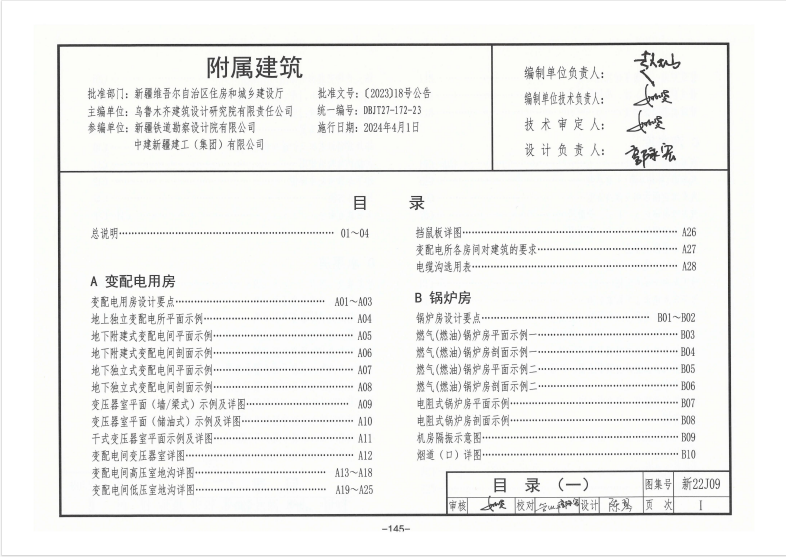 附属建筑
批准部门：新疆维吾尔自治区住房和城乡建设厅 批准文号：〔2023〕18号公告
主编单位：乌鲁木齐建筑设计研究院有限责任公司 统一编号：DBJT27-172-23
参编单位：新疆铁道勘察设计院有限公司 施行日期：2024年4月1日
中建新疆建工（集团）有限公司
编制单位负责人：
编制单位技术负责人：
技术审定人：
设计负责人：
目 录
总说明 01～04
A 变配电用房
变配电用房设计要点 A01～A03
地上独立变配电所平面示例 A04
地下附建式变配电间平面示例 A05
地下附建式变配电间剖面示例 A06
地下独立式变配电间平面示例 A07
地下独立式变配电间剖面示例 A08
变压器室平面（墙/梁式）示例及详图 A09
变压器室平面（储油式）示例及详图 A10
干式变压器室平面示例及详图 A11
变配电间变压器室详图 A12
变配电间高压室地沟详图 A13～A18
变配电间低压室地沟详图 A19～A25
挡鼠板详图 A26
变配电所各房间对建筑的要求 A27
电缆沟选用表 A28
B 锅炉房
锅炉房设计要点 B01～B02
燃气(燃油)锅炉房平面示例一 B03
燃气(燃油)锅炉房剖面示例一 B04
燃气(燃油)锅炉房平面示例二 B05
燃气(燃油)锅炉房剖面示例二 B06
电阻式锅炉房平面示例 B07
电阻式锅炉房剖面示例 B08
机房隔振示意图 B09
烟道（口）详图 B10
目 录（一） 图集号 新22J09
审核 校对 设计 页 次 I
-145-